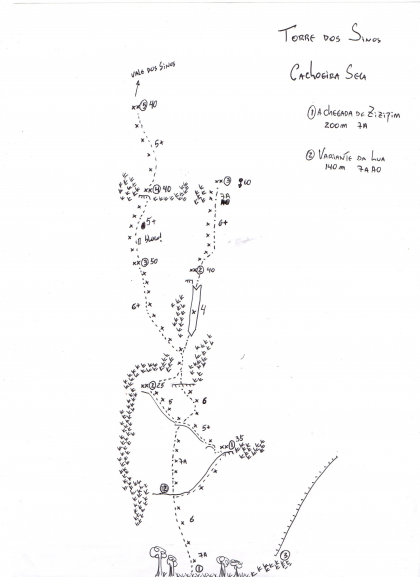 TORRE DOS SINOS
CACHOEIRA SECA
① A CHEGADA DO ZIZIZIM
200m 7A
② VARIANTE DA LUA
140m 7A A0
VALE DOS SINOS
xx⑤ 40
5+
xx④ 40
xx③ 60
7A
A0
5+
6+
bloco!
xx③ 50
xx② 40
6+
4
xx② 25
5
6
5+
35
xx①
7A
②
6
7A
①